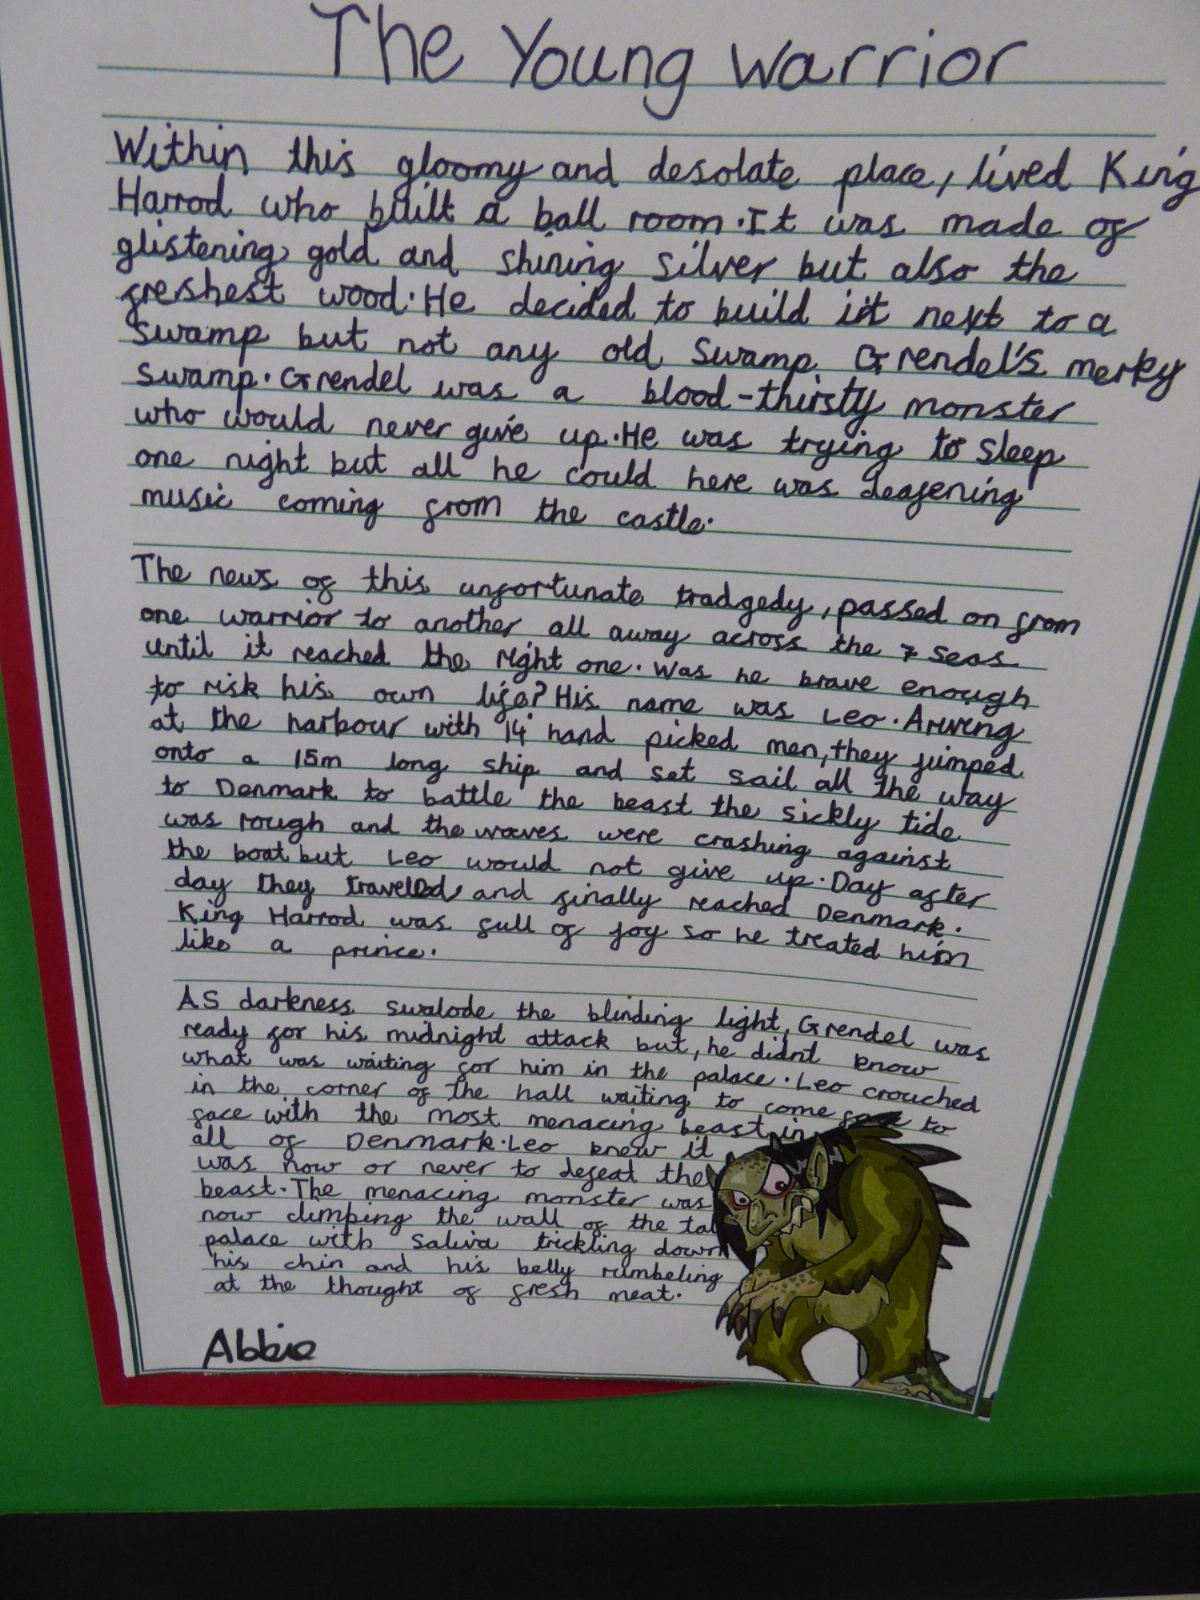 The Young warrior
Within this gloomy and desolate place, lived King
Harrod who built a ball room. It was made of
glistening gold and shining silver but also the
freshest wood. He decided to build it next to a
swamp but not any old swamp Grendel's merky
swamp. Grendel was a blood-thirsty monster
who would never give up. He was trying to sleep
one night but all he could here was deafening
music coming from the castle.
The news of this unfortunate tradgedy, passed on from
one warrior to another all away across the 7 seas
until it reached the right one. Was he brave enough
to risk his own life? His name was Leo. Arriveng
at the harbour with 14 hand picked men, they jumped
onto a 15m long ship and set sail all the way
to Denmark to battle the beast the sickly tide
was rough and the waves were crashing against
the boat but Leo would not give up. Day after
day they travelled and finally reached Denmark.
King Harrod was full of joy so he treated him
like a prince.
As darkness swalode the blinding light, Grendel was
ready for his midnight attack but, he didnt know
what was waiting for him in the palace. Leo crouched
in the corner of the hall waiting to come face to
face with the most menacing beast in
all of Denmark. Leo knew it
was now or never to defeat the
beast. The menacing monster was
now climbing the wall of the tal
palace with saliva trickling down
his chin and his belly rumbeling
at the thought of fresh meat.
Abbie